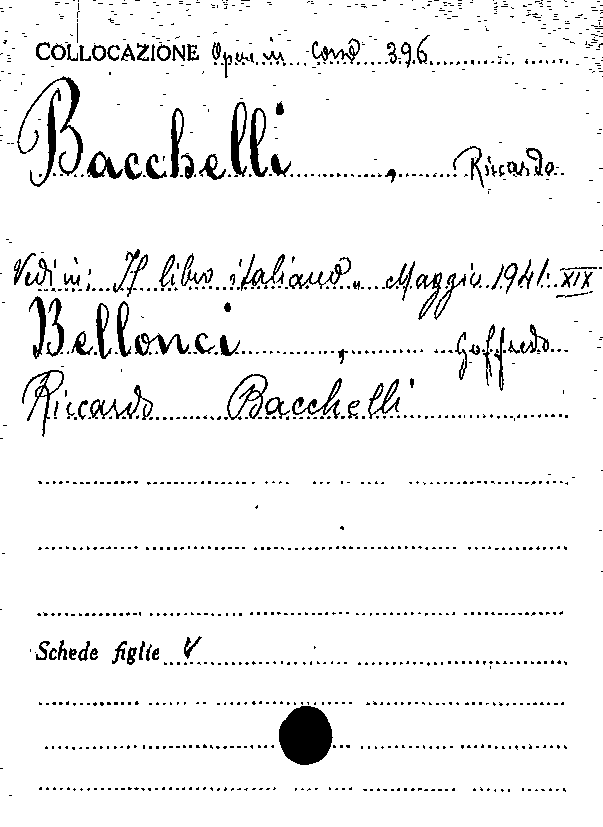 COLLOCAZIONE Opere in Corso 396
Bacchelli, Riccardo
Vedi in: Il libro italiano„ Maggio 1941. XIX
Bellonci, Goffredo
Riccardo Bacchelli
Schede figlie V